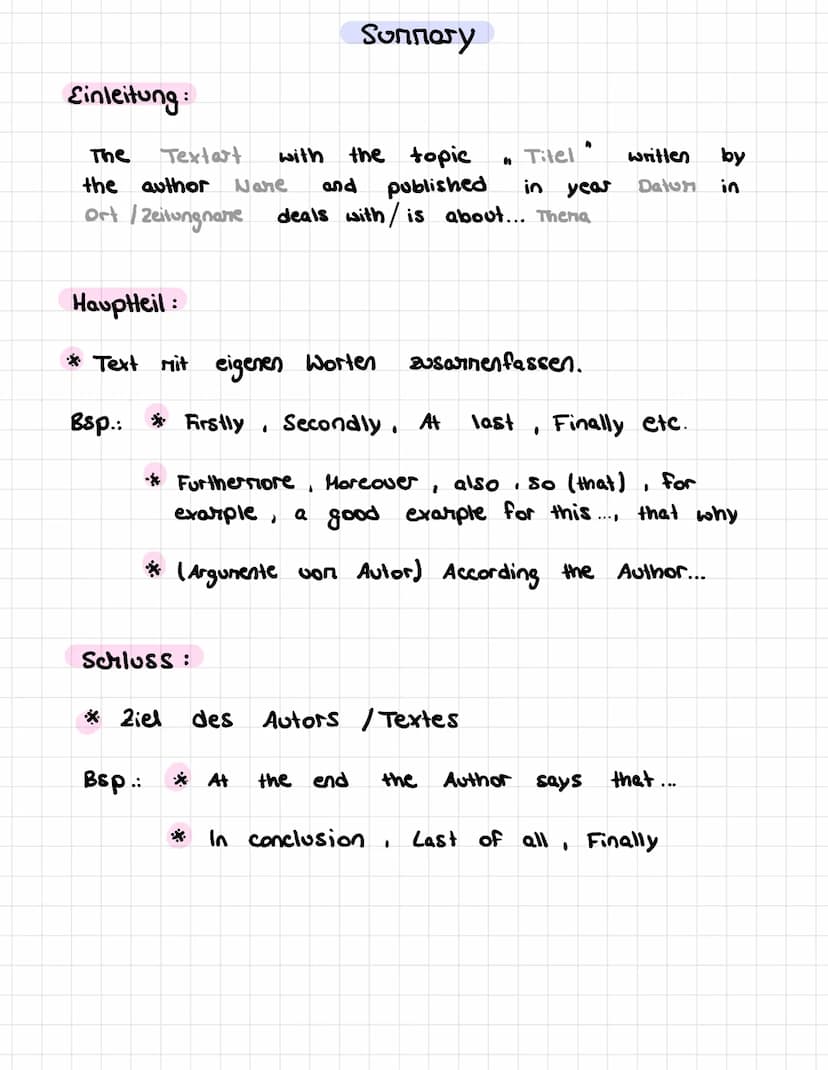 Summary
Einleitung:
The Textart with the topic „ Titel " written by
the author Name and published in year Datum in
Ort / Zeitungname deals with/ is about... Thema
Hauptteil:
* Text mit eigenen Worten zusammenfassen.
Bsp.: * Firstly, Secondly, At last, Finally etc.
* Furthermore, Moreover, also, so (that), for
example, a good example for this ..., that why
* (Argumente von Autor) According the Author...
Schluss:
* Ziel des Autors / Textes
Bsp.: * At the end the Author says that ...
* In conclusion, Last of all, Finally